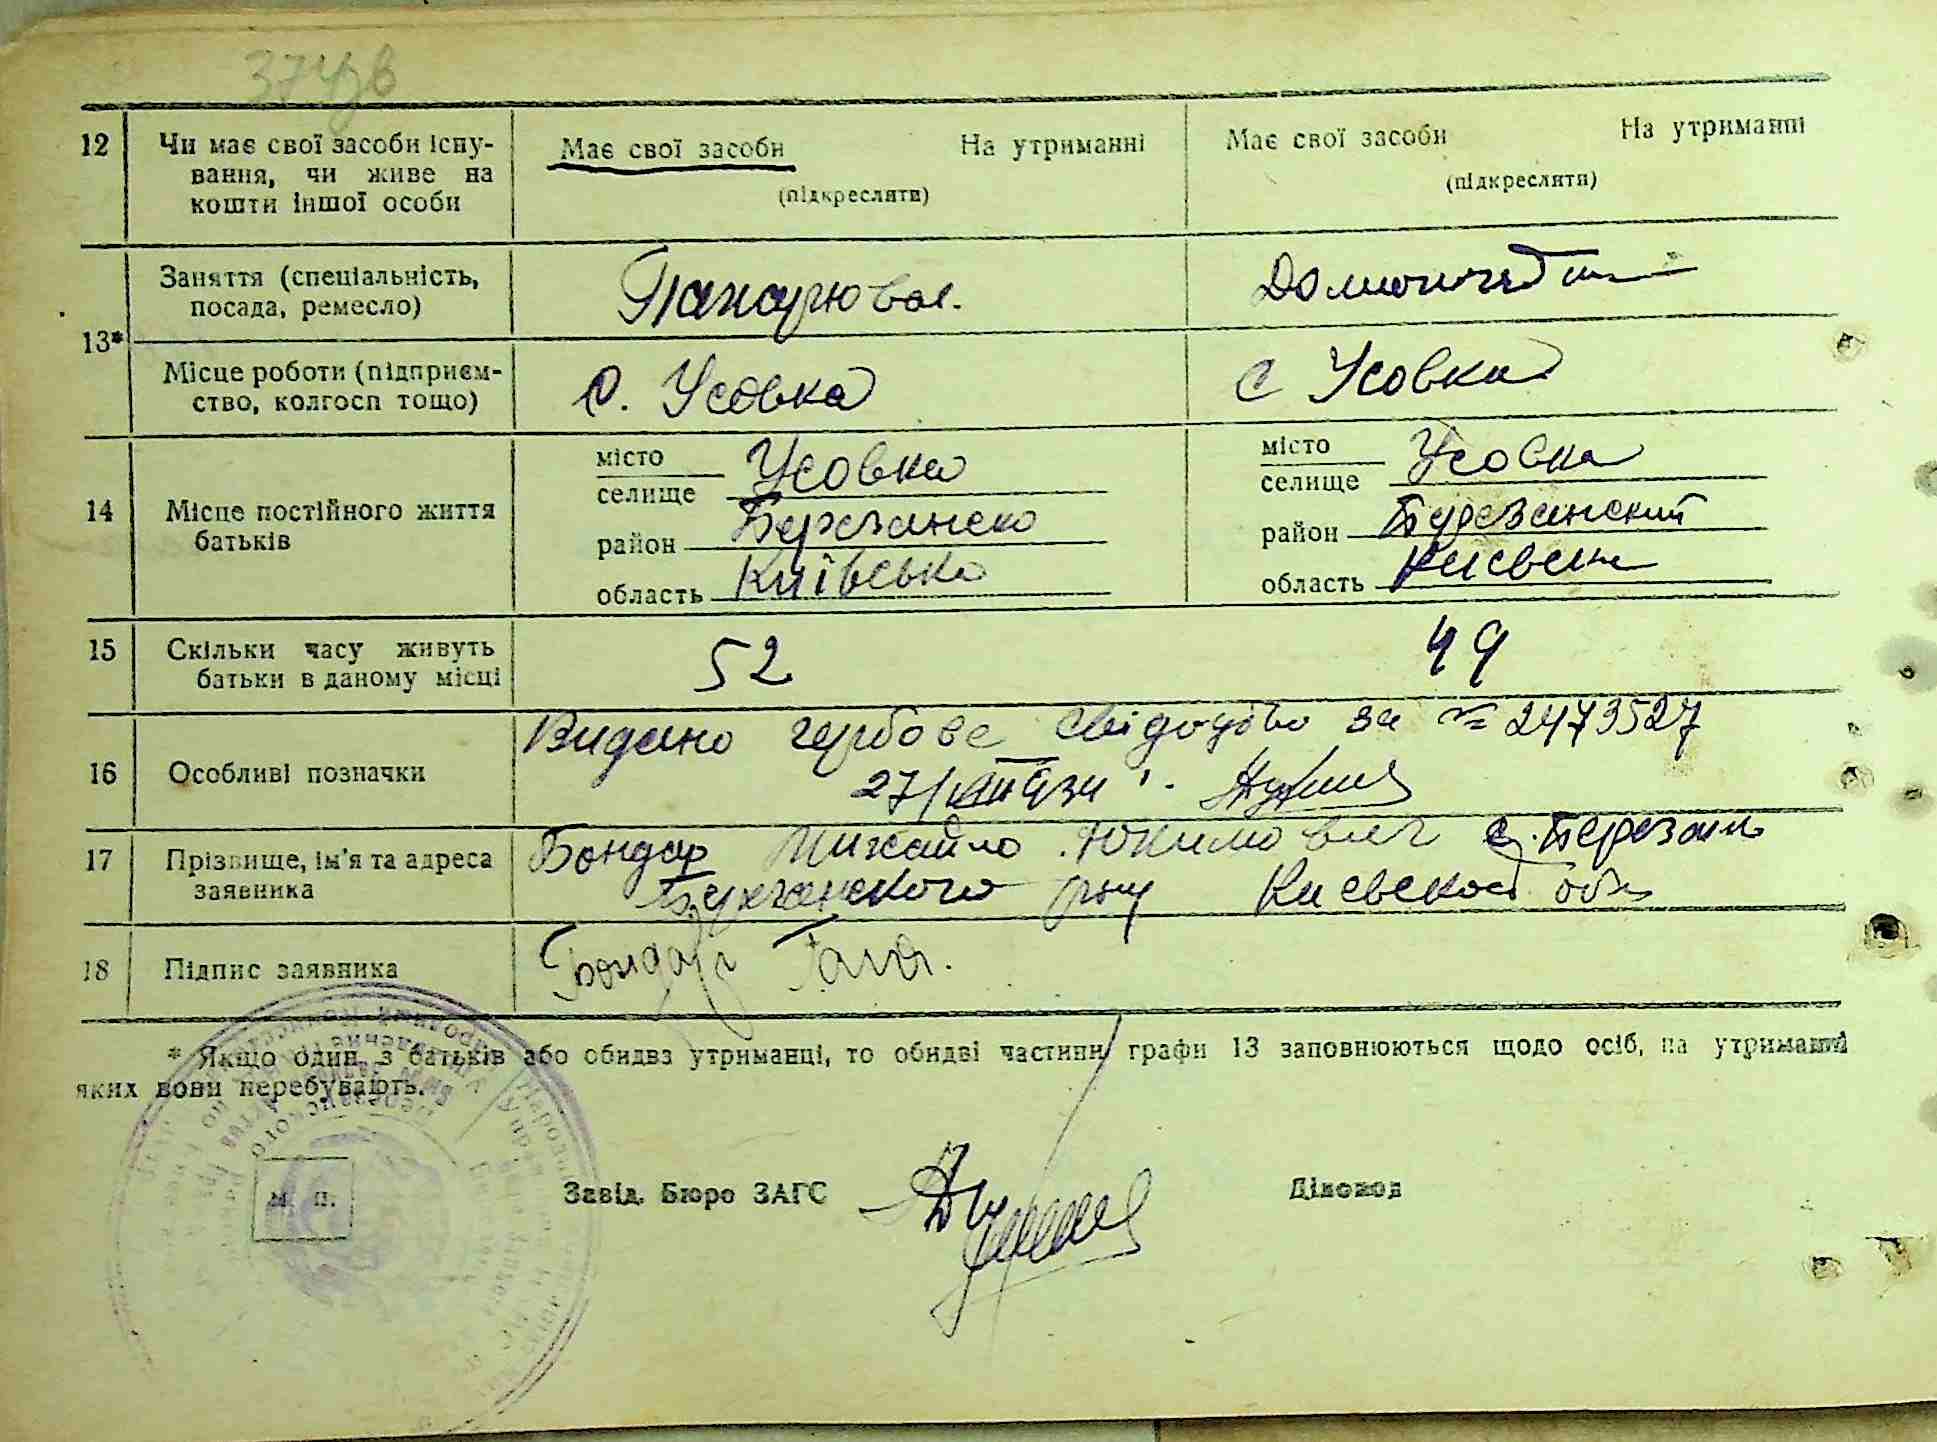 374зв
12 Чи має свої засоби існу-
вання, чи живе на
кошти іншої особи
Має свої засоби На утриманні
(підкреслити)
Має свої засоби На утриманні
(підкреслити)
13*
Заняття (спеціальність,
посада, ремесло)
Місце роботи (підприєм-
ство, колгосп тощо)
с. Усовка
с Усовка
14 Місце постійного життя
батьків
місто
селище Усовка
район Березанско
область Київсько
місто
селище Усовка
район Березанский
область
15 Скільки часу живуть
батьки в даному місці
52
49
16 Особливі позначки
Видано гербове свідоцтво за № 2473527
27/VIII
17 Прізвище, ім'я та адреса
заявника
Бондар Михайло Юхимович с. Березань
Березанского р-ну Киевской обл
18 Підпис заявника
Бондарь
* Якщо один з батьків або обидва утриманці, то обидві частини графи 13 заповнюються щодо осіб, на утриманні
яких вони перебувають.
М. П.
Завід. Бюро ЗАГС
Діловод